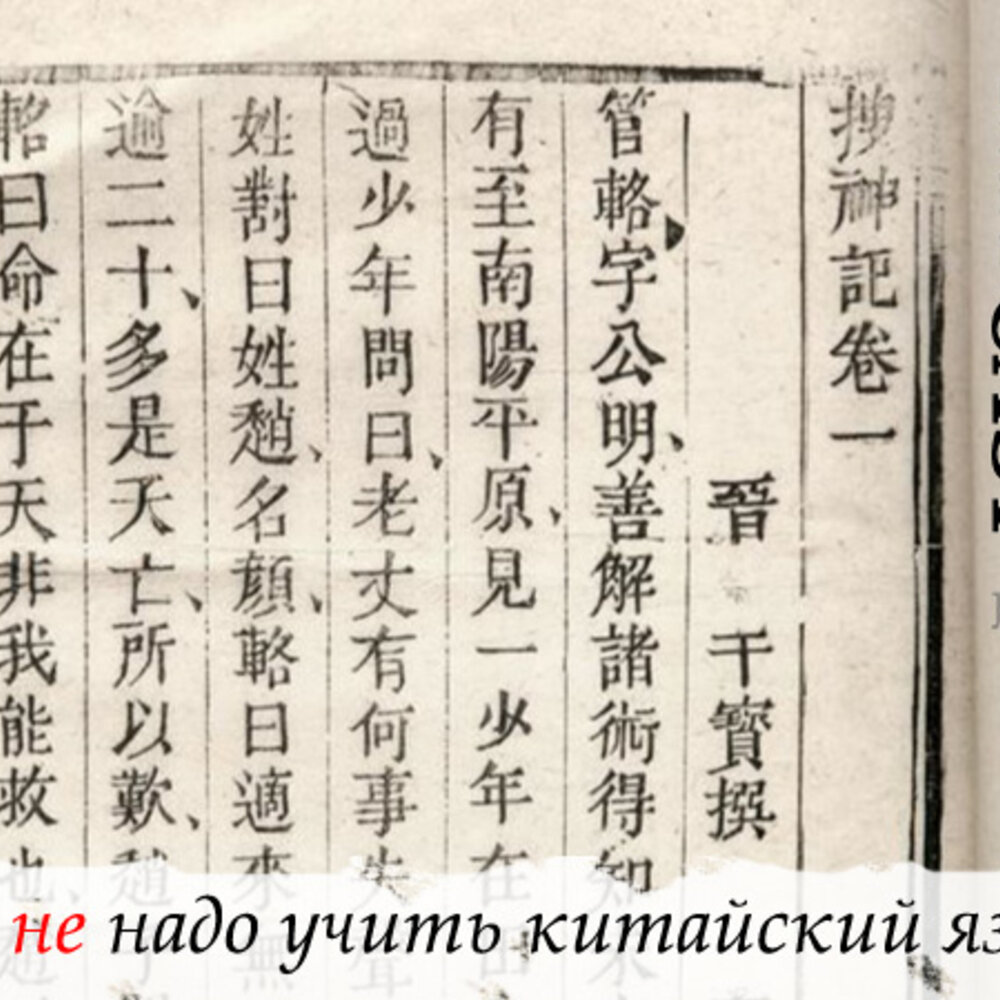 搜神記卷一
晉 干寶撰
管輅字公明、善解諸術得知
有至南陽平原、見一少年在
過少年問曰、老丈有何事
姓對曰姓趙、名顔、輅曰適來無
逾二十、多是夭亡、所以歎、趙
輅曰命在于天非我能救也、
не надо учить китайский яз